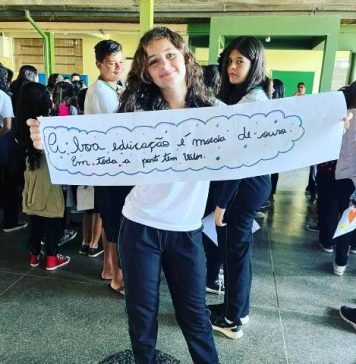 A boa educação é moeda de ouro.
Em toda a part tem valor.